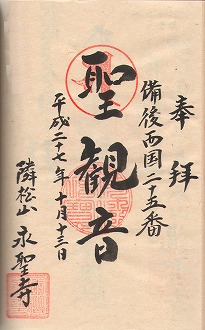 奉拝
備後西国二十五番
聖観音
平成二十七年十月十三日
隣松山永聖寺